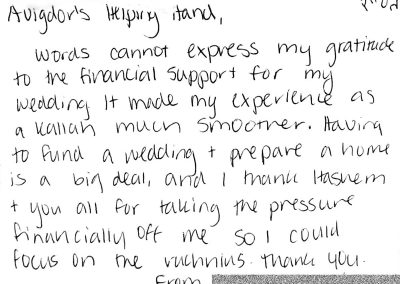 Avigdor's Helping Hand,
Words cannot express my gratitude
to the financial support for my
wedding It made my experience as
a kallah much smoother. Having
to fund a wedding + prepare a home
is a big deal, and I thank Hashem
+ you all for taking the pressure
financially off me so I could
focus on the ruchnius. Thank you.
From